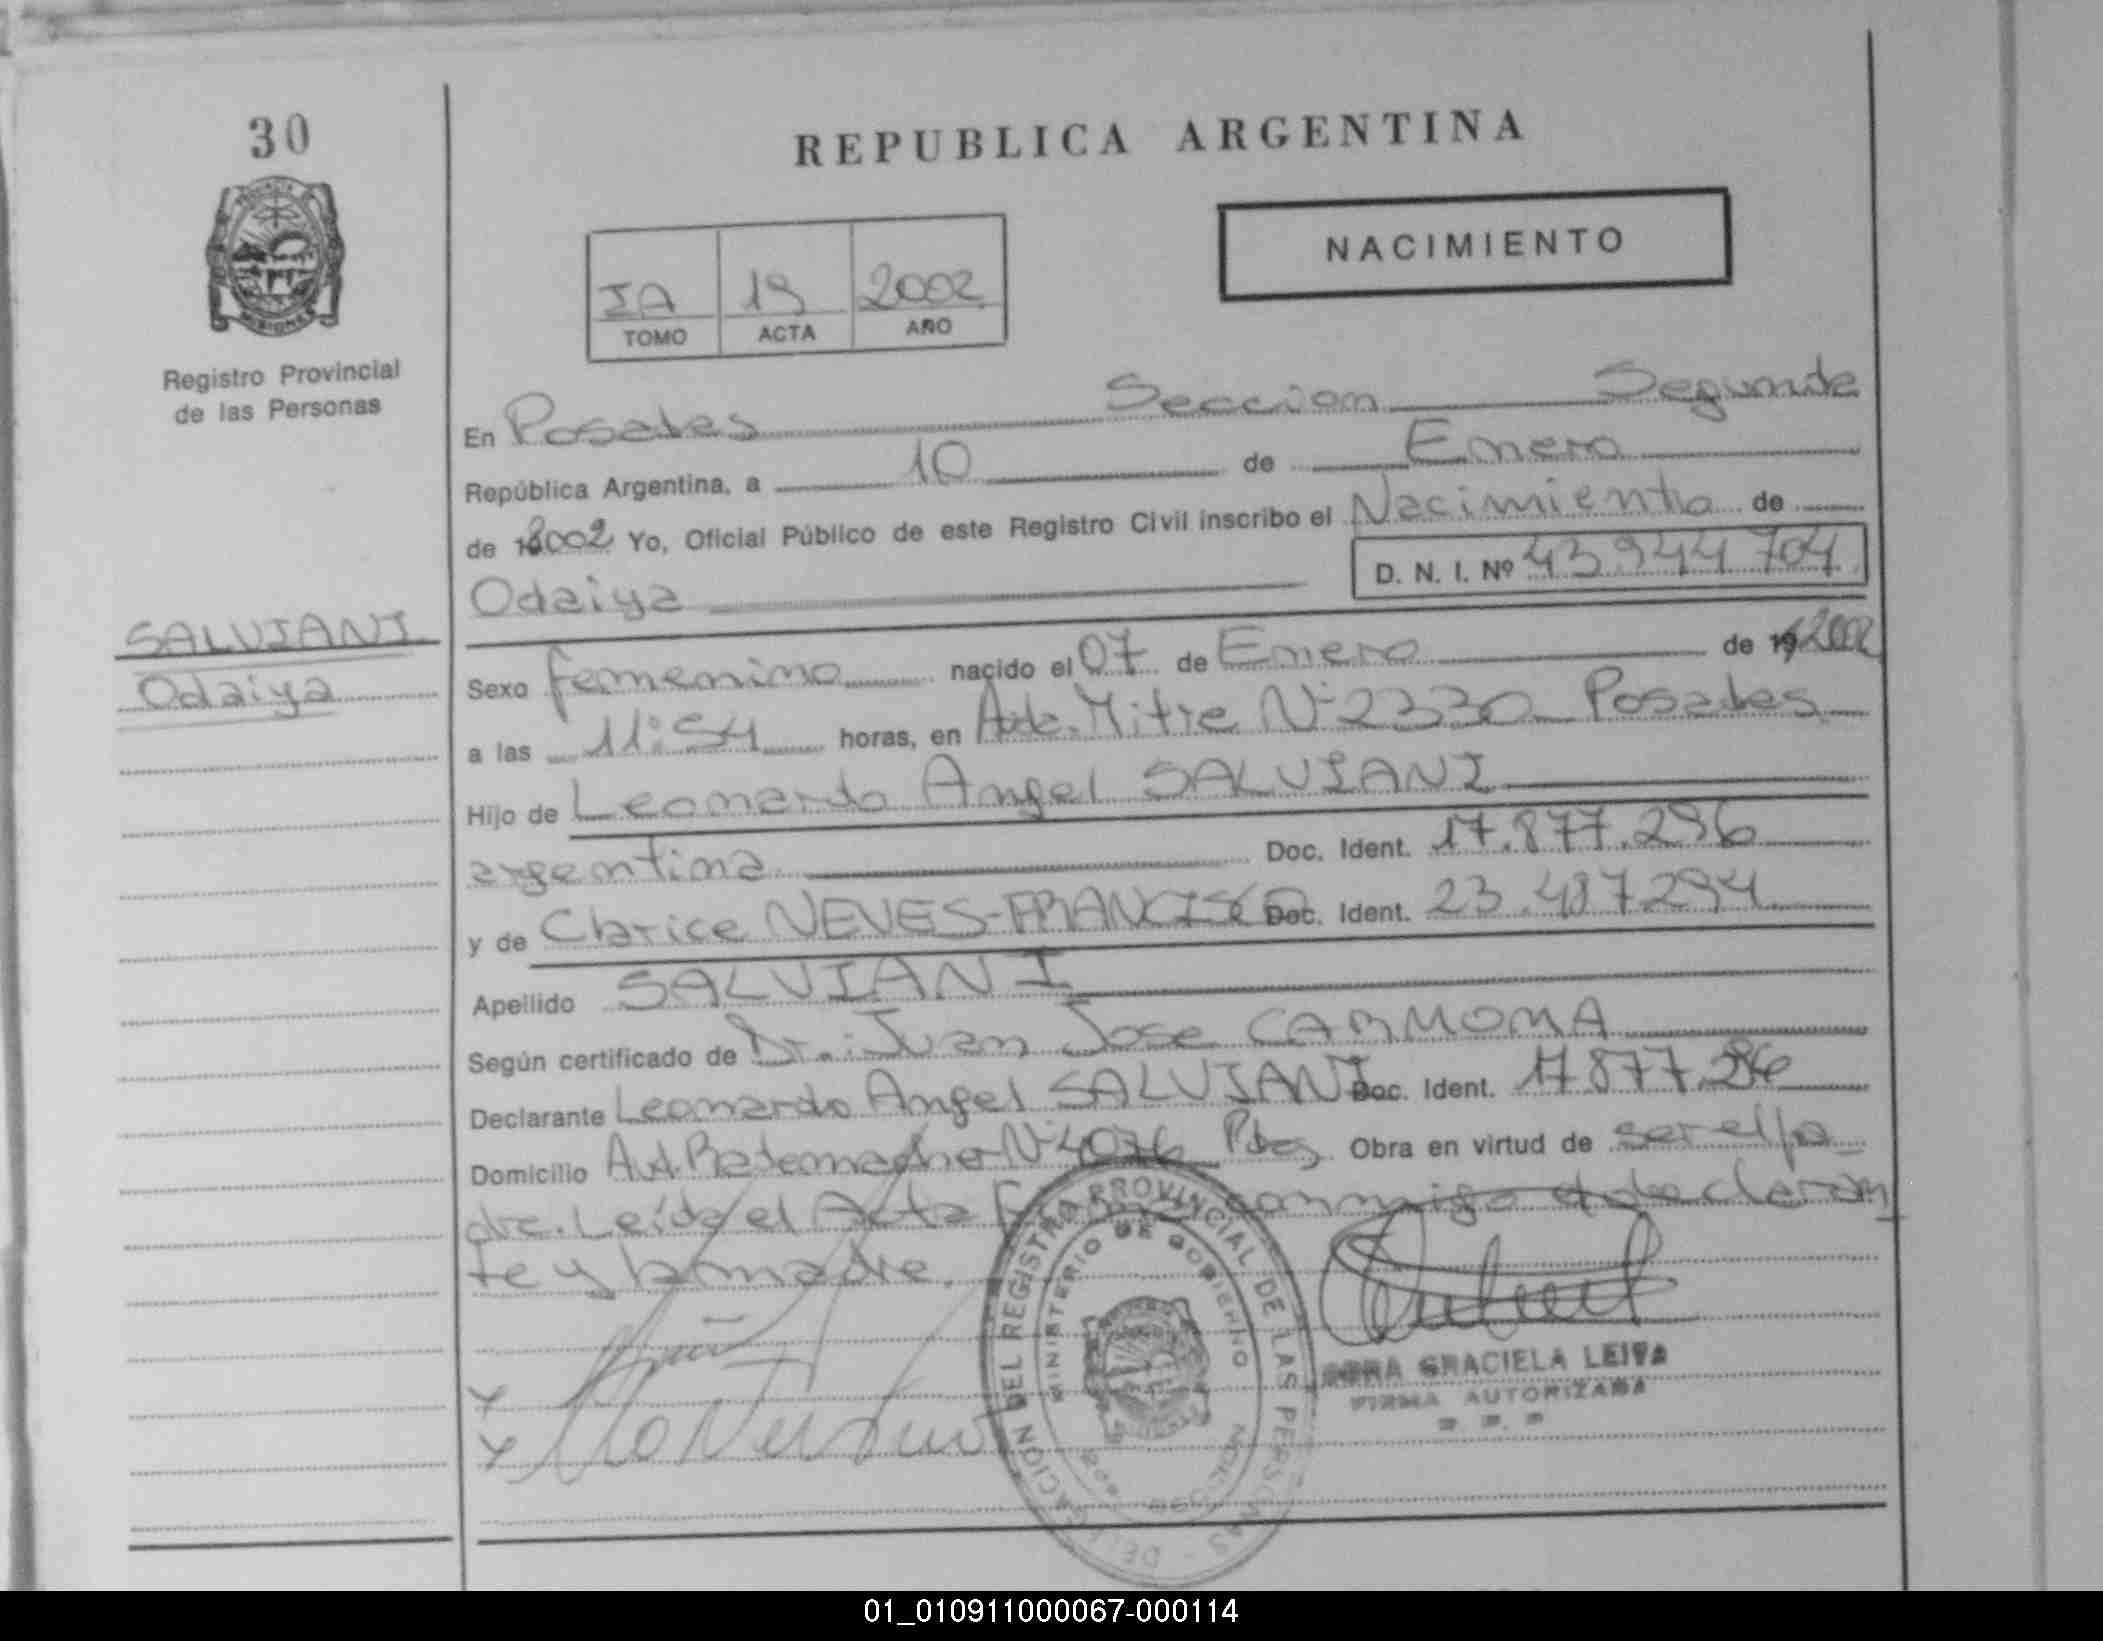 30
REPUBLICA ARGENTINA
NACIMIENTO
IA 19 2002
TOMO ACTA AÑO
MISIONES
Registro Provincial
de las Personas
En Posadas Seccion Segunda
República Argentina, a 10 de Enero
de 2002 Yo, Oficial Público de este Registro Civil inscribo el Nacimiento de
Odaiya D. N. I. Nº 43.944.704
SALVIANI
Odaiya
Sexo femenino nacido el 07 de Enero de 19 2002
a las 11:54 horas, en Avda. Mitre Nº 2330 Posadas
Hijo de Leonardo Angel SALVIANI
argentina Doc. Ident. 17.877.296
y de Clarice NEVES-FRANCISCO Doc. Ident. 23.487.294
Apellido SALVIANI
Según certificado de Dr.: Juan Jose CARMONA
Declarante Leonardo Angel SALVIANI Doc. Ident. 17.877.296
Domicilio Avd Rademacher Nº 4076 Pdas Obra en virtud de ser el pa
dre. Leída el Acta conmigo el declaran
te y la madre.
DELEGACION DEL REGISTRO PROVINCIAL DE LAS PERSONAS
MINISTERIO DE GOBIERNO
GRACIELA LEIVA
FIRMA AUTORIZADA
R. P. P.
01_010911000067-000114